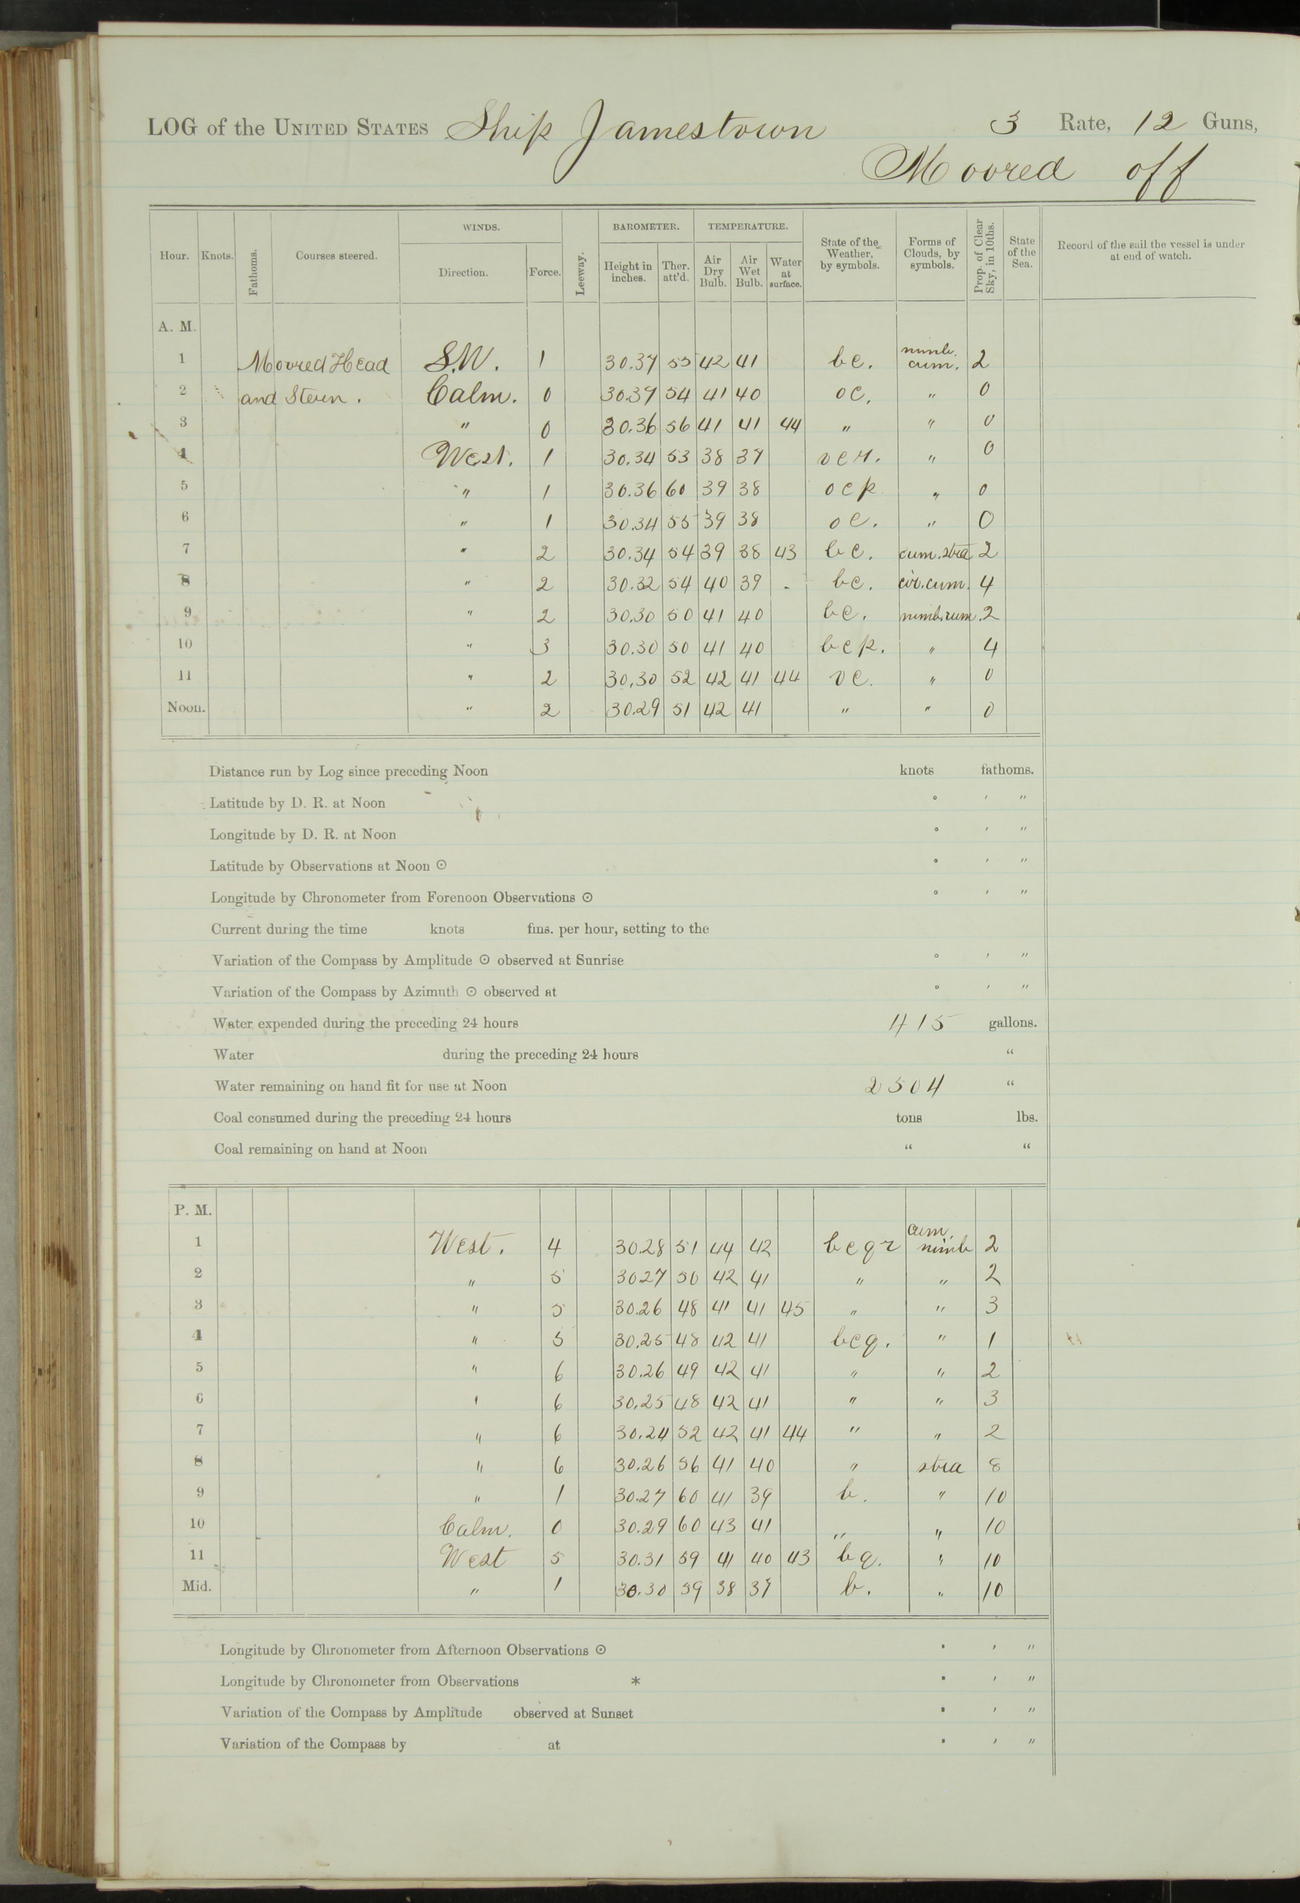 LOG of the UNITED STATES Ship Jamestown 3 Rate, 12 Guns,
Moored off
Hour. Knots. Fathoms. Courses steered. WINDS. Direction. Force. Leeway. BAROMETER. Height in inches. Ther. att'd. TEMPERATURE. Air Dry Bulb. Air Wet Bulb. Water at surface. State of the Weather, by symbols. Forms of Clouds, by symbols. Prop. of Clear Sky, in 10ths. State of the Sea. Record of the sail the vessel is under at end of watch.
A. M.
1 Moored Head S.W. 1 30.37 55 42 41 bc. nimb. cum. 2
2 and Stern. Calm. 0 30.37 54 41 40 oc. " 0
3 " 0 30.36 56 41 41 44 " " 0
4 West. 1 30.34 53 38 37 ocr. " 0
5 " 1 30.36 60 39 38 ocp " 0
6 " 1 30.34 55 39 38 oc. " 0
7 " 2 30.34 54 39 38 43 bc. cum.stra 2
8 " 2 30.32 54 40 39 - bc. cir.cum. 4
9 " 2 30.30 50 41 40 bc. nimb.cum. 2
10 " 3 30.30 50 41 40 bcp. " 4
11 " 2 30.30 52 42 41 44 oc. " 0
Noon. " 2 30.29 51 42 41 " " 0
Distance run by Log since preceding Noon knots fathoms.
Latitude by D. R. at Noon ° ′ ″
Longitude by D. R. at Noon ° ′ ″
Latitude by Observations at Noon ⊙ ° ′ ″
Longitude by Chronometer from Forenoon Observations ⊙ ° ′ ″
Current during the time knots fms. per hour, setting to the
Variation of the Compass by Amplitude ⊙ observed at Sunrise ° ′ ″
Variation of the Compass by Azimuth ⊙ observed at ° ′ ″
Water expended during the preceding 24 hours 415 gallons.
Water during the preceding 24 hours "
Water remaining on hand fit for use at Noon 2504 "
Coal consumed during the preceding 24 hours tons lbs.
Coal remaining on hand at Noon " "
P. M.
1 West. 4 30.28 51 44 42 bcqr cum. nimb 2
2 " 5 30.27 50 42 41 " " 2
3 " 5 30.26 48 41 41 45 " " 3
4 " 5 30.25 48 42 41 bcq. " 1
5 " 6 30.26 49 42 41 " " 2
6 " 6 30.25 48 42 41 " " 3
7 " 6 30.24 52 42 41 44 " " 2
8 " 6 30.26 56 41 40 " stra 8
9 " 1 30.27 60 41 39 b. " 10
10 Calm. 0 30.29 60 43 41 " " 10
11 West 5 30.31 59 41 40 43 bq. " 10
Mid. " 1 30.30 59 38 37 b. " 10
Longitude by Chronometer from Afternoon Observations ⊙ ° ′ ″
Longitude by Chronometer from Observations * ° ′ ″
Variation of the Compass by Amplitude observed at Sunset ° ′ ″
Variation of the Compass by at ° ′ ″